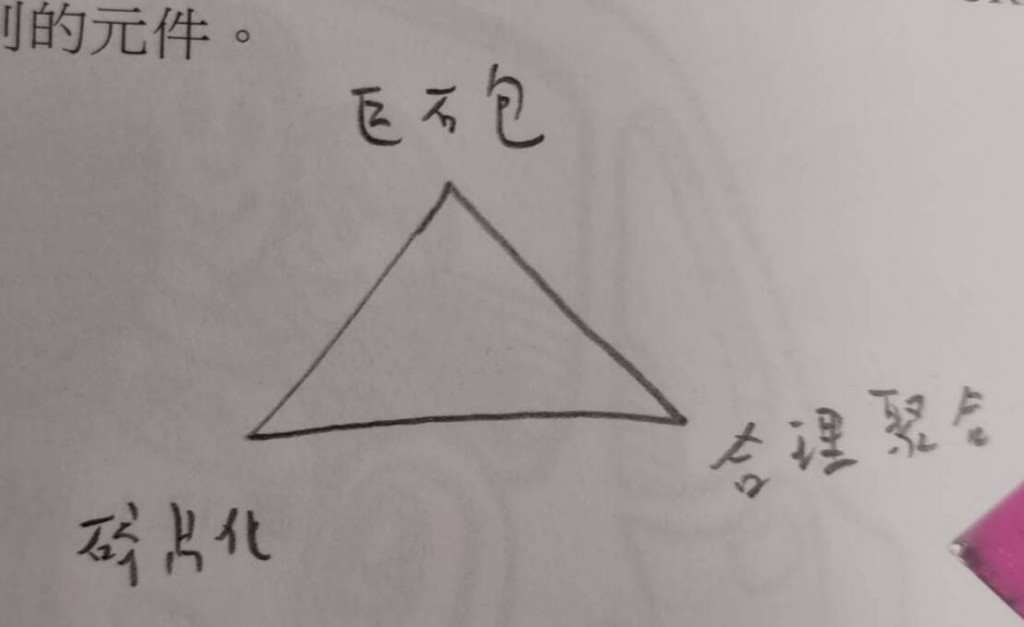 別的元件。
巨石包
合理聚合
碎片化